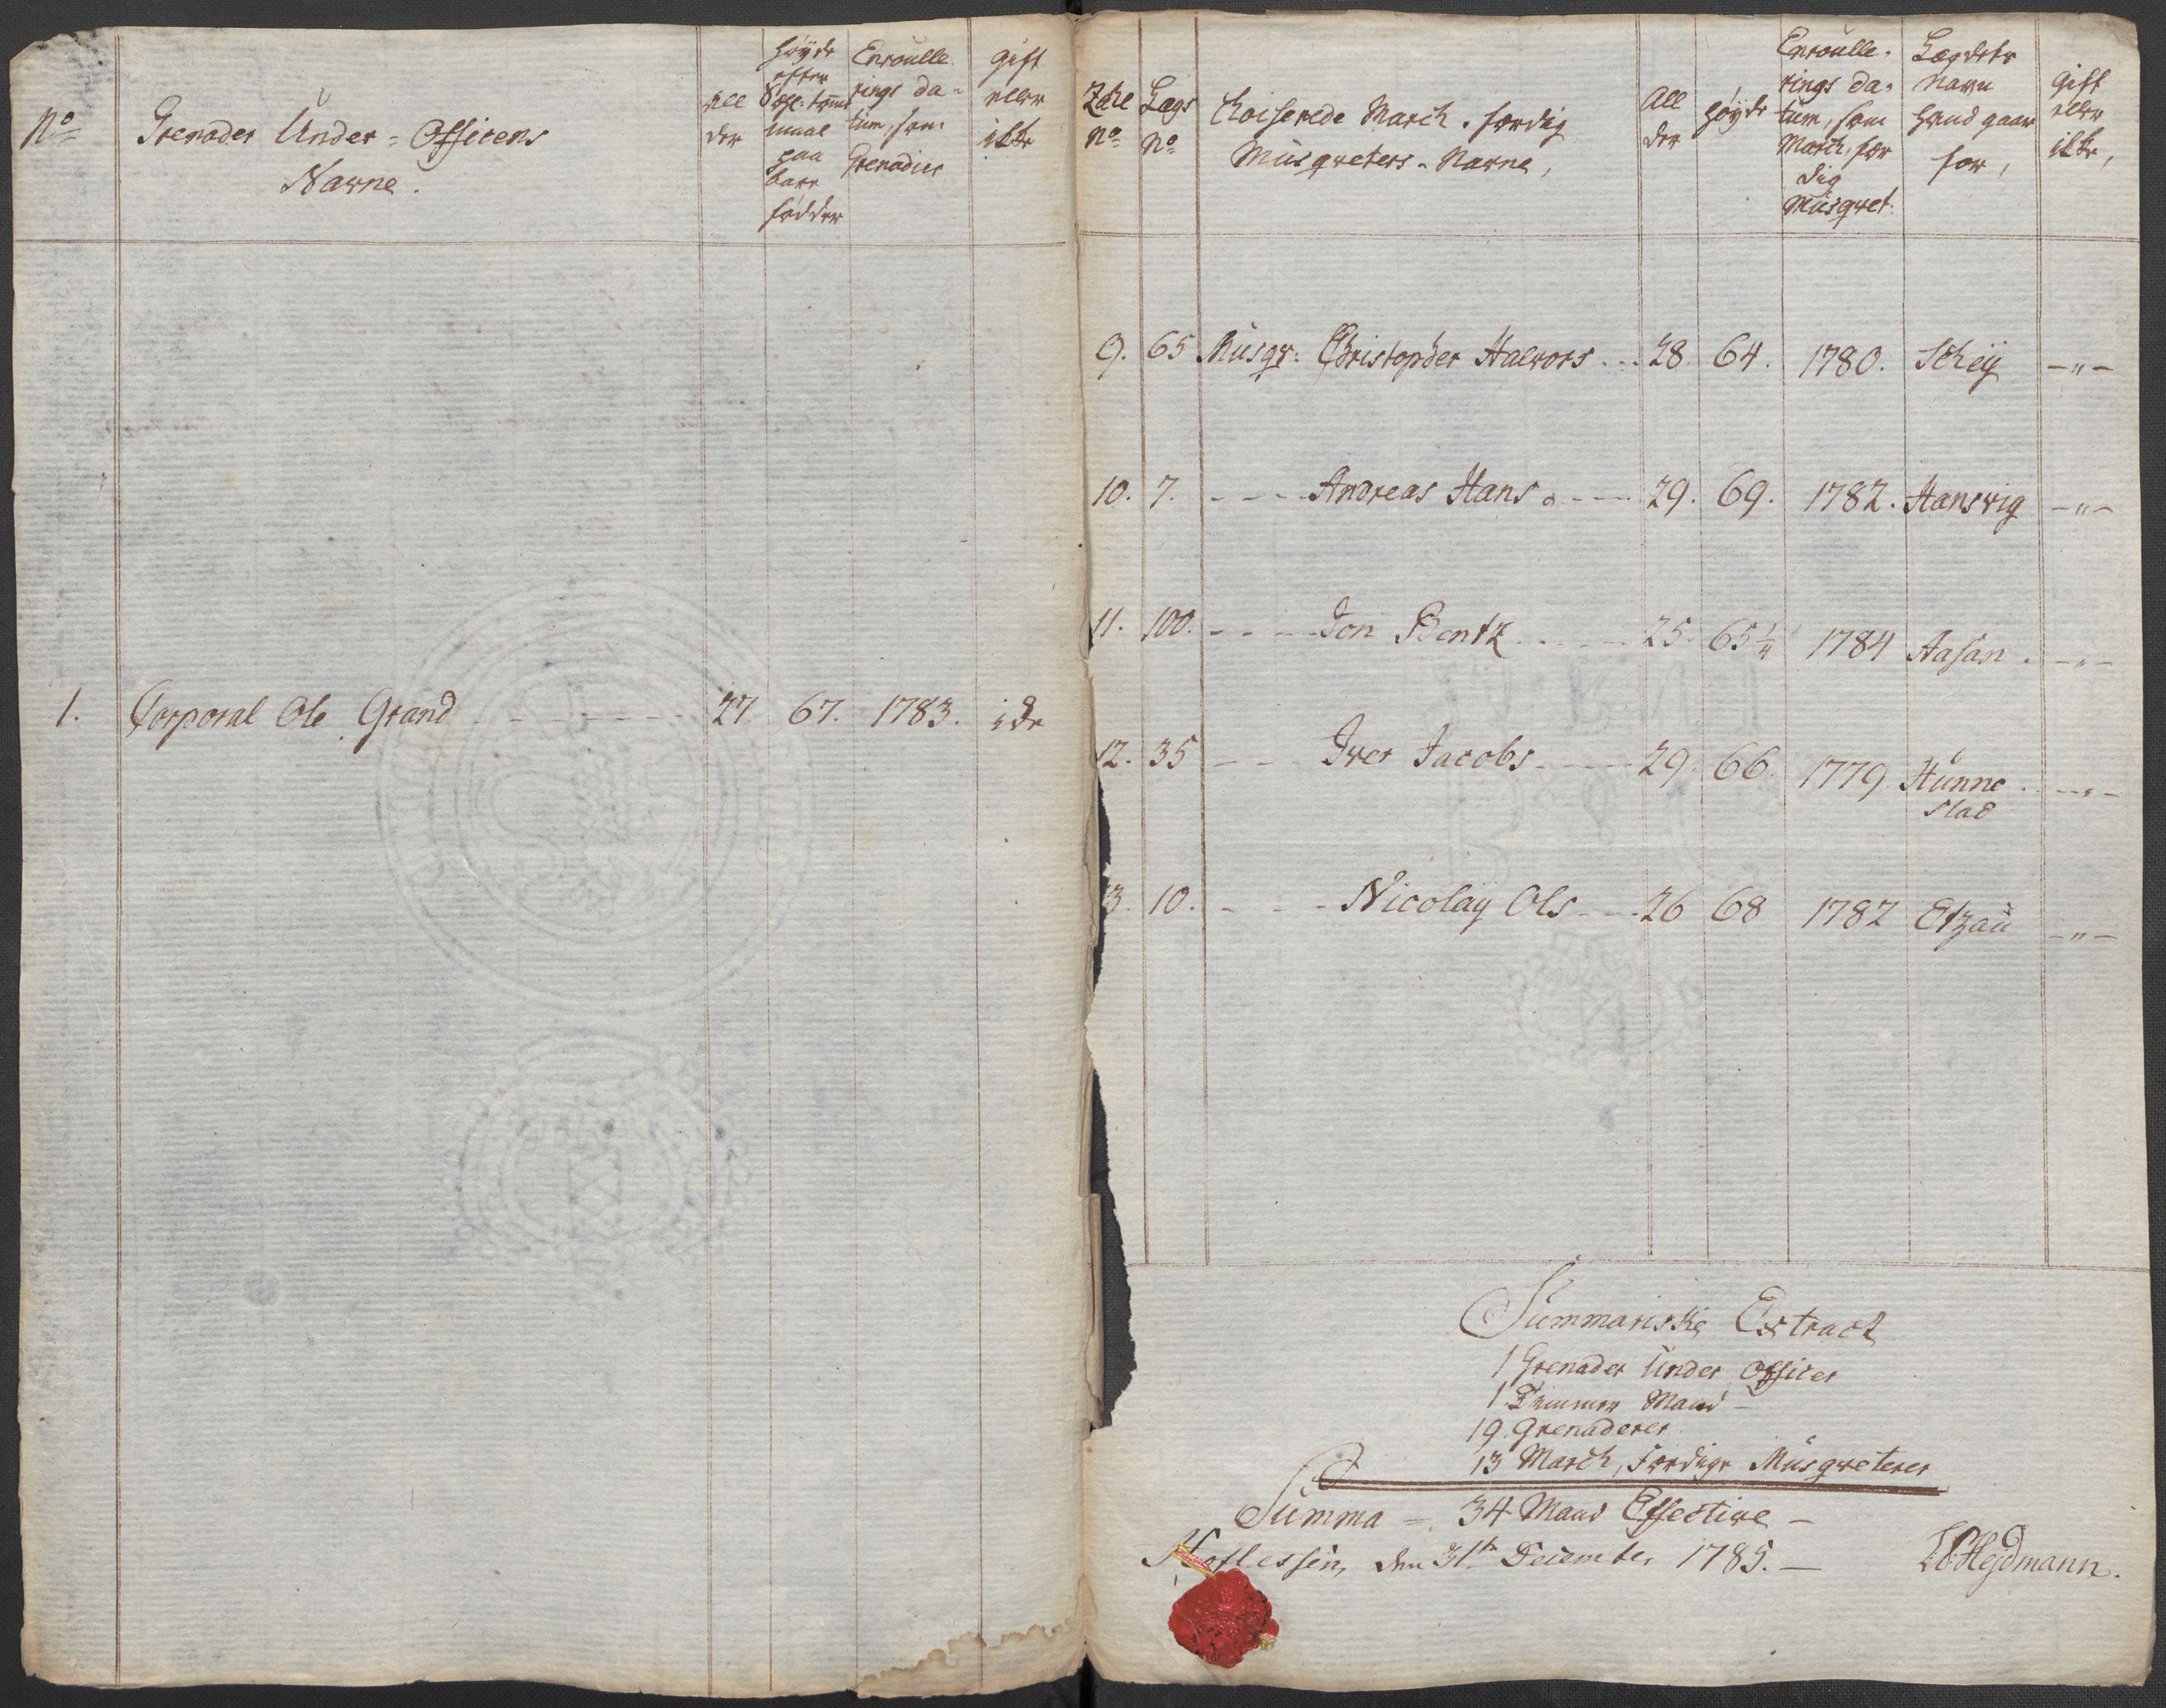 No
Grenader Under-Officers
Navne.
All
der
høyde
efter
tom
maal
paa
bare
fødder
Enroulle
rings da-
tum, som
Grenadier
gift
eller
ikke
1. Corporal Ole Grand 27 67. 1783. ide
Zahl
No
Lægs
No
Choiserede March-færdig
Musqveters-Navne,
All
der
høyde
Enroulle-
rings da-
tum, som
March, fær
dig
Musqvet.
Lægdets
Navn
hand gaar
for,
gift
eller
ikke,
9. 65 Musqv: Christopher Halvors 28. 64. 1780. Scheij -"-
10. 7. Andreas Hans 29. 69. 1782. Hansvig -"-
11. 100. Jon Bentz 25. 65 1/4 1784 Aasan. -"-
12. 35 Iver Jacobs 29. 66. 1779 Hunne
stad -"-
13. 10. Nicolaij Ols 26 68 1782 Etzau -"-
Summariske Extract
1 Grenader Under Officer
1 Timmer Mand
19. Grenaderer
13 March, Færdige Musqveterer
Summa = 34 Mand Effective -
den 31te December 1785. - Hejdmann.